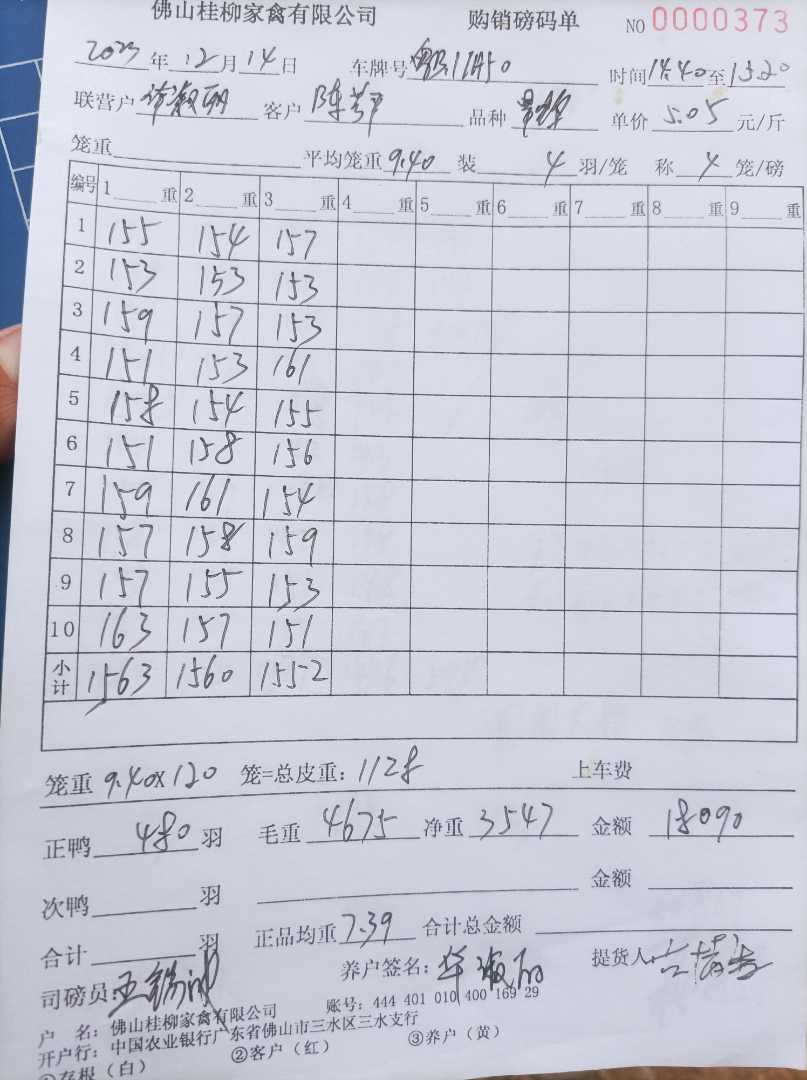 佛山桂柳家禽有限公司 购销磅码单 NO 0000373
2023年12月14日 车牌号 时间14:40至15:20
联营户 客户 陈 品种 单价 5.05 元/斤
笼重 平均笼重 9.40 装 4 羽/笼 称 4 笼/磅
编号 1 重 2 重 3 重 4 重 5 重 6 重 7 重 8 重 9 重
1 155 154 157
2 153 153 153
3 159 157 153
4 151 153 161
5 158 154 155
6 151 158 156
7 159 161 154
8 157 158 159
9 157 155 153
10 163 157 151
小计 1563 1560 1552
笼重 9.40x120 笼=总皮重: 1128 上车费
正鸭 480 羽 毛重 4675 净重 3547 金额 18090
次鸭 羽 金额
合计 羽 正品均重 7.39 合计总金额
司磅员: 养户签名: 提货人:
户 名: 佛山桂柳家禽有限公司 账号: 444 401 010 400 169 29
开户行: 中国农业银行广东省佛山市三水区三水支行
①存根（白） ②客户（红） ③养户（黄）